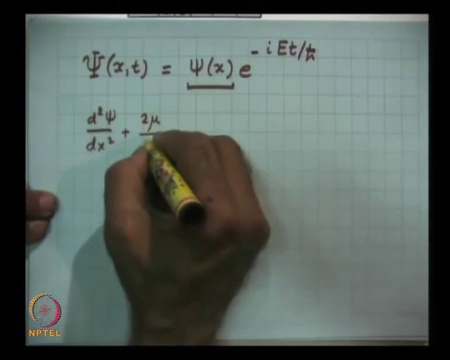 Ψ(x,t) = ψ(x) e^{-iEt/ħ}
d²ψ/dx² + 2μ
NPTEL